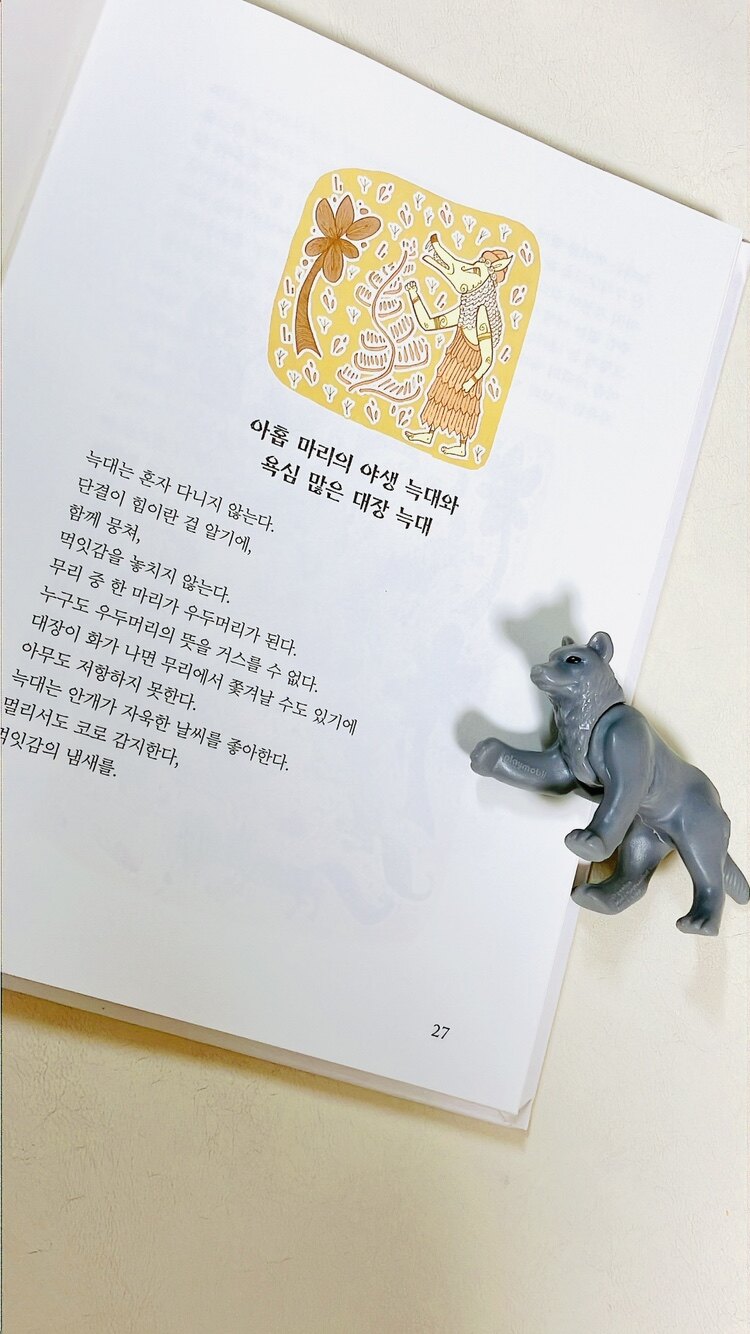 아홉 마리의 야생 늑대와
욕심 많은 대장 늑대
늑대는 혼자 다니지 않는다.
단결이 힘이란 걸 알기에,
함께 뭉쳐,
먹잇감을 놓치지 않는다.
무리 중 한 마리가 우두머리가 된다.
누구도 우두머리의 뜻을 거스를 수 없다.
대장이 화가 나면 무리에서 쫓겨날 수도 있기에
아무도 저항하지 못한다.
늑대는 안개가 자욱한 날씨를 좋아한다.
멀리서도 코로 감지한다,
먹잇감의 냄새를.
playmobil
27